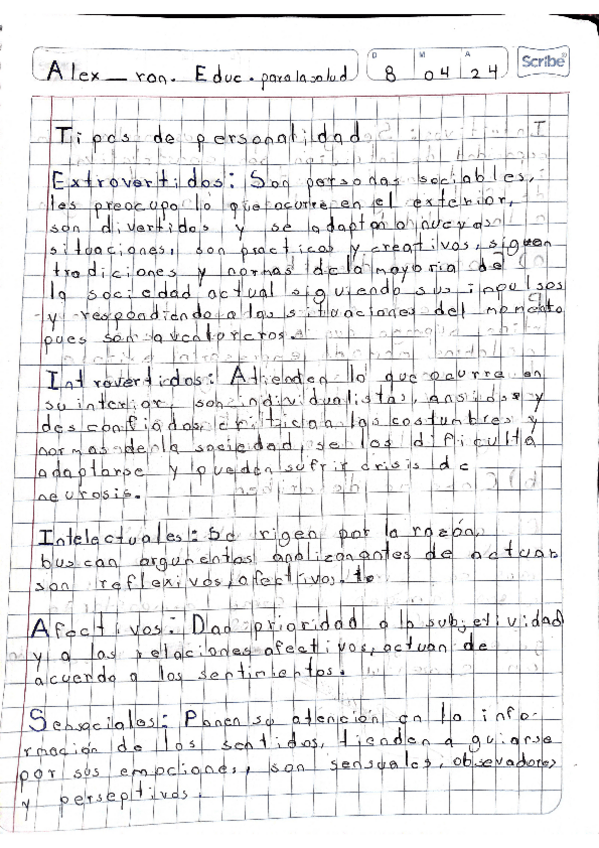 Alex_ron. Educ. para la salud
D M A
8 04 24
Scribe
Tipos de personalidad
Extrovertidos: Son personas sociables,
les preocupa lo que ocurre en el exterior,
son divertidos y se adaptan a nuevas
situaciones, son practicas y creativos, siguen
tradiciones y normas de la mayoria de
la sociedad actual siguiendo sus impulsos
y respondiendo a las situaciones del momento
pues son
Introvertidos: Atienden lo que ocurre en
su interior, son individualistas, ansidos y
desconfiados, critician las costumbres y
normas de la sociedad, se los dificulta
adaptarse y pueden sufrir crisis de
neurosis.
Intelectuales: Se rigen por la razón,
buscan argumentos analizan antes de actuar
son reflexivos, afectivos.
Afectivos: Dan prioridad a la subjetividad
y a las relaciones afectivos, actuan de
acuerdo a los sentimientos.
Sensaciales: Ponen su atención en la info-
rmación de los sentidos, tienden a guiarse
por sus emociones, son sensuales, observadores
y perseptivos.